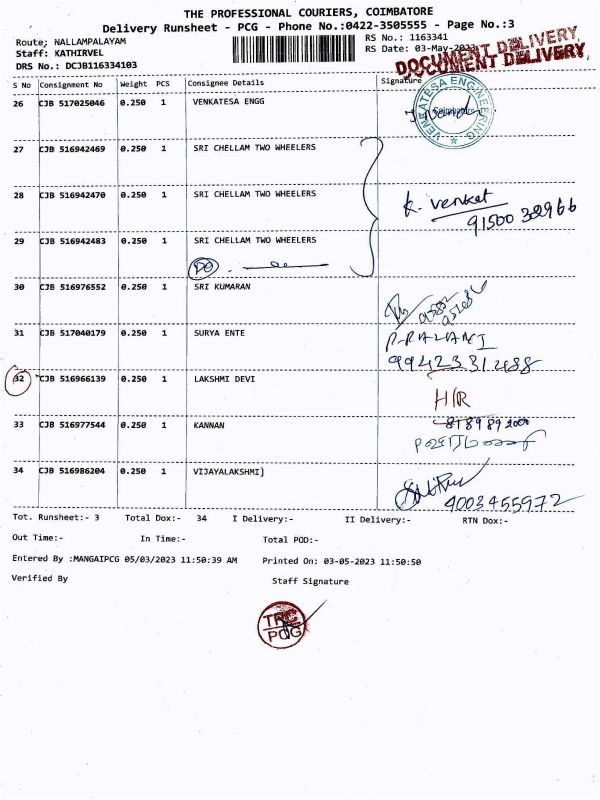 THE PROFESSIONAL COURIERS, COIMBATORE
Delivery Runsheet - PCG - Phone No.:0422-3505555 - Page No.:3
Route; NALLAMPALAYAM
RS No.: 1163341
Staff: KATHIRVEL
RS Date: 03-May-2023
DRS No.: DCJB116334103
DOCUMENT DELIVERY
DOCUMENT DELIVERY
S No Consignment No Weight PCS Consignee Details Signature
26 CJB 517025046 0.250 1 VENKATESA ENGG
VENKATESA ENGINEERING
Coimbatore
27 CJB 516942469 0.250 1 SRI CHELLAM TWO WHEELERS
28 CJB 516942470 0.250 1 SRI CHELLAM TWO WHEELERS
K. Venkat
29 CJB 516942483 0.250 1 SRI CHELLAM TWO WHEELERS
DO
30 CJB 516976552 0.250 1 SRI KUMARAN
31 CJB 517040179 0.250 1 SURYA ENTE
P-PALANI
32 CJB 516966139 0.250 1 LAKSHMI DEVI
H/R
33 CJB 516977544 0.250 1 KANNAN
34 CJB 516986204 0.250 1 VIJAYALAKSHMI]
9003455972
Tot. Runsheet:- 3 Total Dox:- 34 I Delivery:- II Delivery:- RTN Dox:-
Out Time:- In Time:- Total POD:-
Entered By :MANGAIPCG 05/03/2023 11:50:39 AM Printed On: 03-05-2023 11:50:50
Verified By Staff Signature
TPC
PCG